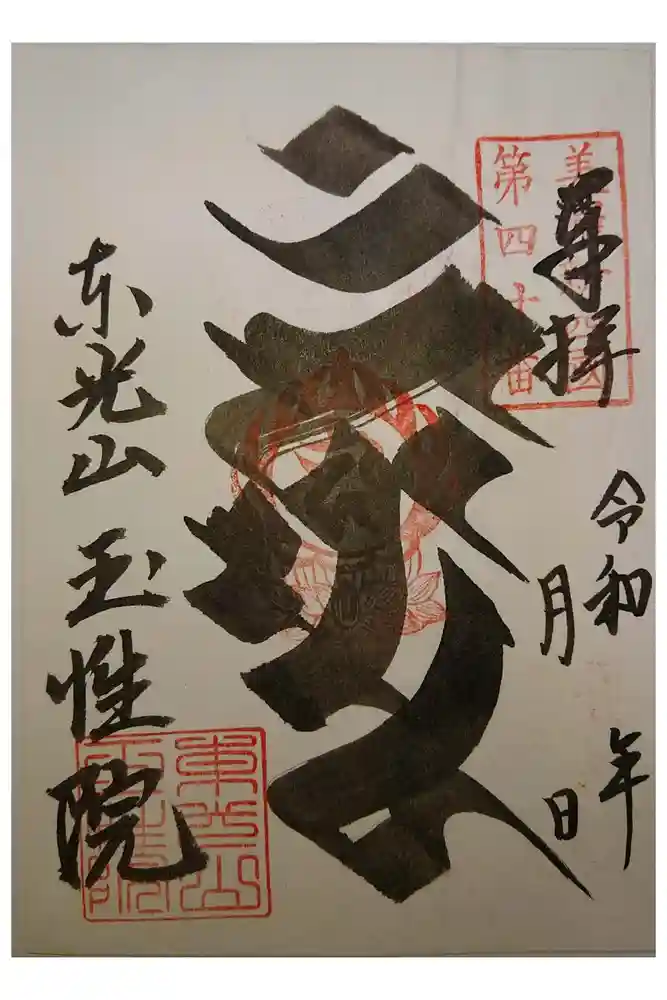 美濃新四国
第四十番
尊拝
令和 年
月 日
東光山 玉性院
東光山
玉性院